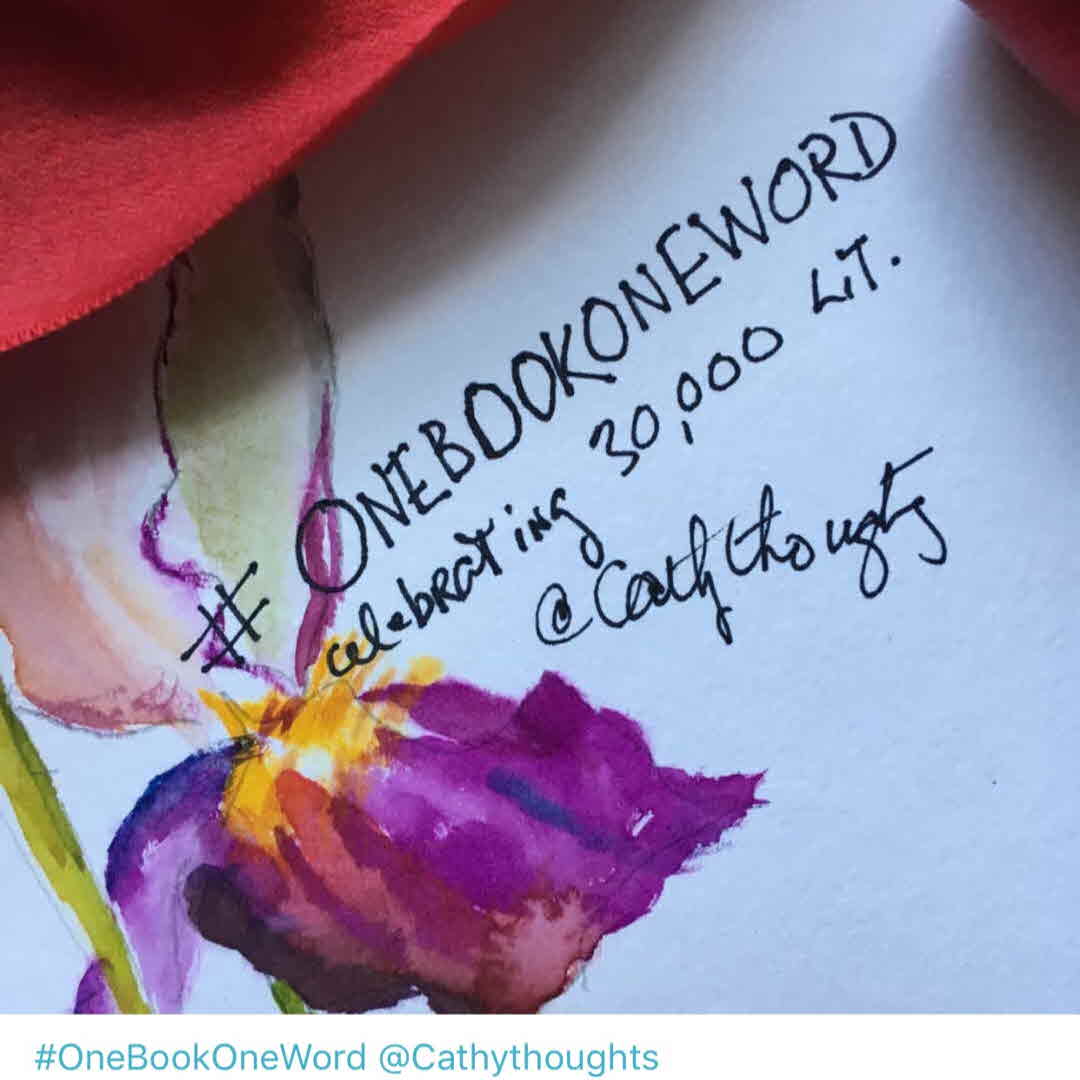 # ONEBOOKONEWORD
celebrating 30,000 LiT.
@Cathythoughts
#OneBookOneWord @Cathythoughts